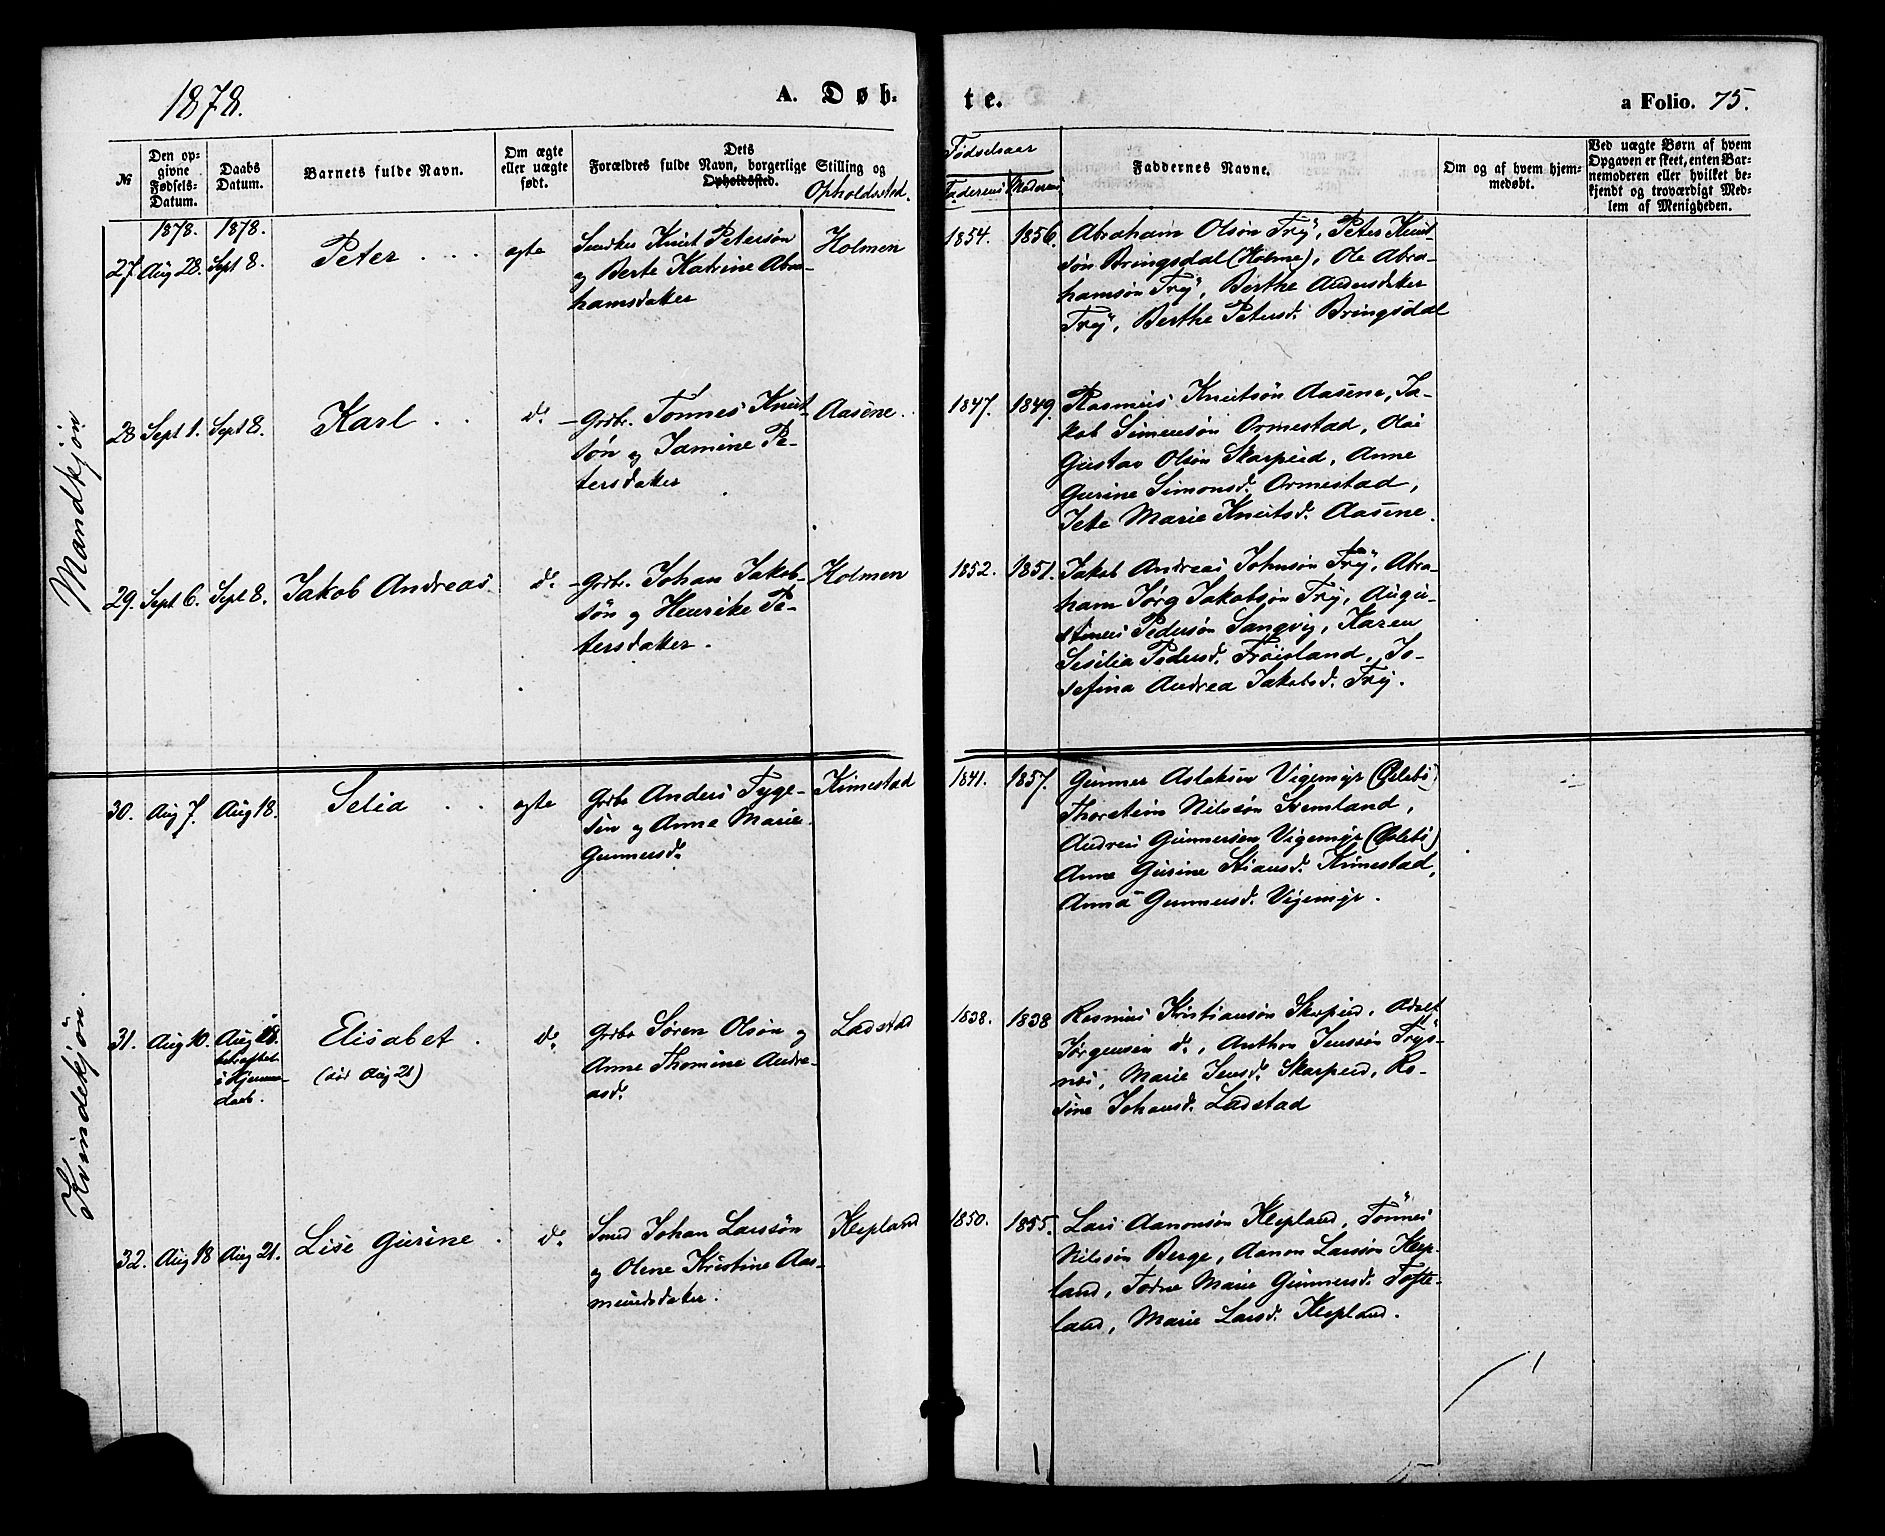 1878.
A. Døb-
te.
a Folio. 75.
№
Den op-
givne
Fødsels-
Datum.
Daabs
Datum.
Barnets fulde Navn.
Om ægte
eller uægte
født.
Dets
Forældres fulde Navn, borgerlige Stilling og
Opholdssted.
Opholdssted.
Fødselsaar
Faderens Moderens
Faddernes Navne.
Om og af hvem hjem-
medøbt.
Ved uægte Børn af hvem
Opgaven er skeet, enten Bar-
nemoderen eller hvilket be-
kjendt og troværdigt Med-
lem af Menigheden.
Mandkjøn
1878. 1878.
27. Aug 28. Sept 8.
Peter
egte
Knut Petersön
og Berte Katrine Abra-
hamsdatter
Holmen
1854. 1856.
Abraham Olsön Try, Peter Knut-
sön Bringsdal (Holme), Ole Abra-
hamsön Try, Berthe Andersdatter
Try, Berthe Petersd. Bringsdal
28 Sept 1. Sept 8.
Karl
do.
Grdbr. Tönnes Knut-
sön og Tamine Pe-
tersdatter
Aasene.
1847. 1849.
Rasmus Knutsön Aasene, Ja-
kob Simensön Ormestad, Olai
Gustav Olsön Skarpeid, Anne
Gurine Simonsd. Ormestad,
Marie Knutsd. Aasene.
29. Sept 6. Sept 8.
Jakob Andreas
do.
Grdbr. Johan Jakob-
sön og Henrike Pe-
tersdatter.
Holmen
1852. 1851.
Jakob Andreas Johnsön Try, Abra-
ham Jørg Jakobsön Try, Augu-
stinus Pedersön Sangvig, Karen
Sesilia Pedersd. Fröisland, Jo-
sefina Andrea Jakobsd. Try.
Kvindekjön.
30. Aug 7. Aug 18.
Selia
egte
Grdbr Anders Tyge-
sen og Anne Marie
Gunnersd.
Kimestad
1841. 1857.
Gunner Aslaksen Vigemyr (Øslebö)
Thorstein Nilssön
Andreas Gunnersen Vigemyr (Øslebö)
Anne Gurine Stiansd. Kimestad,
Anna Gunnersd. Vigemyr.
31. Aug 10. Aug 18.
bekræftet
i Hjemme-
daab.
Elisabet
(död Aug 21)
do.
Grdbr Søren Olsön og
Anne Thomine Andre-
asd.
Ladstad
1838. 1838
Rasmus Kristiansön Skarpeid, Adolf
Jørgensen do., Anthon Jenssön Trys-
nes, Marie Jensd. Skarpeid, Ro-
sine Johansd. Ladstad
32. Aug 18 Aug 21.
Lise Gurine
do.
Smed Johan Larssön
og Olene Kristine Aas-
mundsdatter.
Klepland
1850. 1855.
Lars Aanonsön Klepland, Tönnes
Nilssön Berge, Aanon Larssön Klep-
land, Todne Marie Gunnersd. Tofte-
land, Marie Larsd. Klepland.